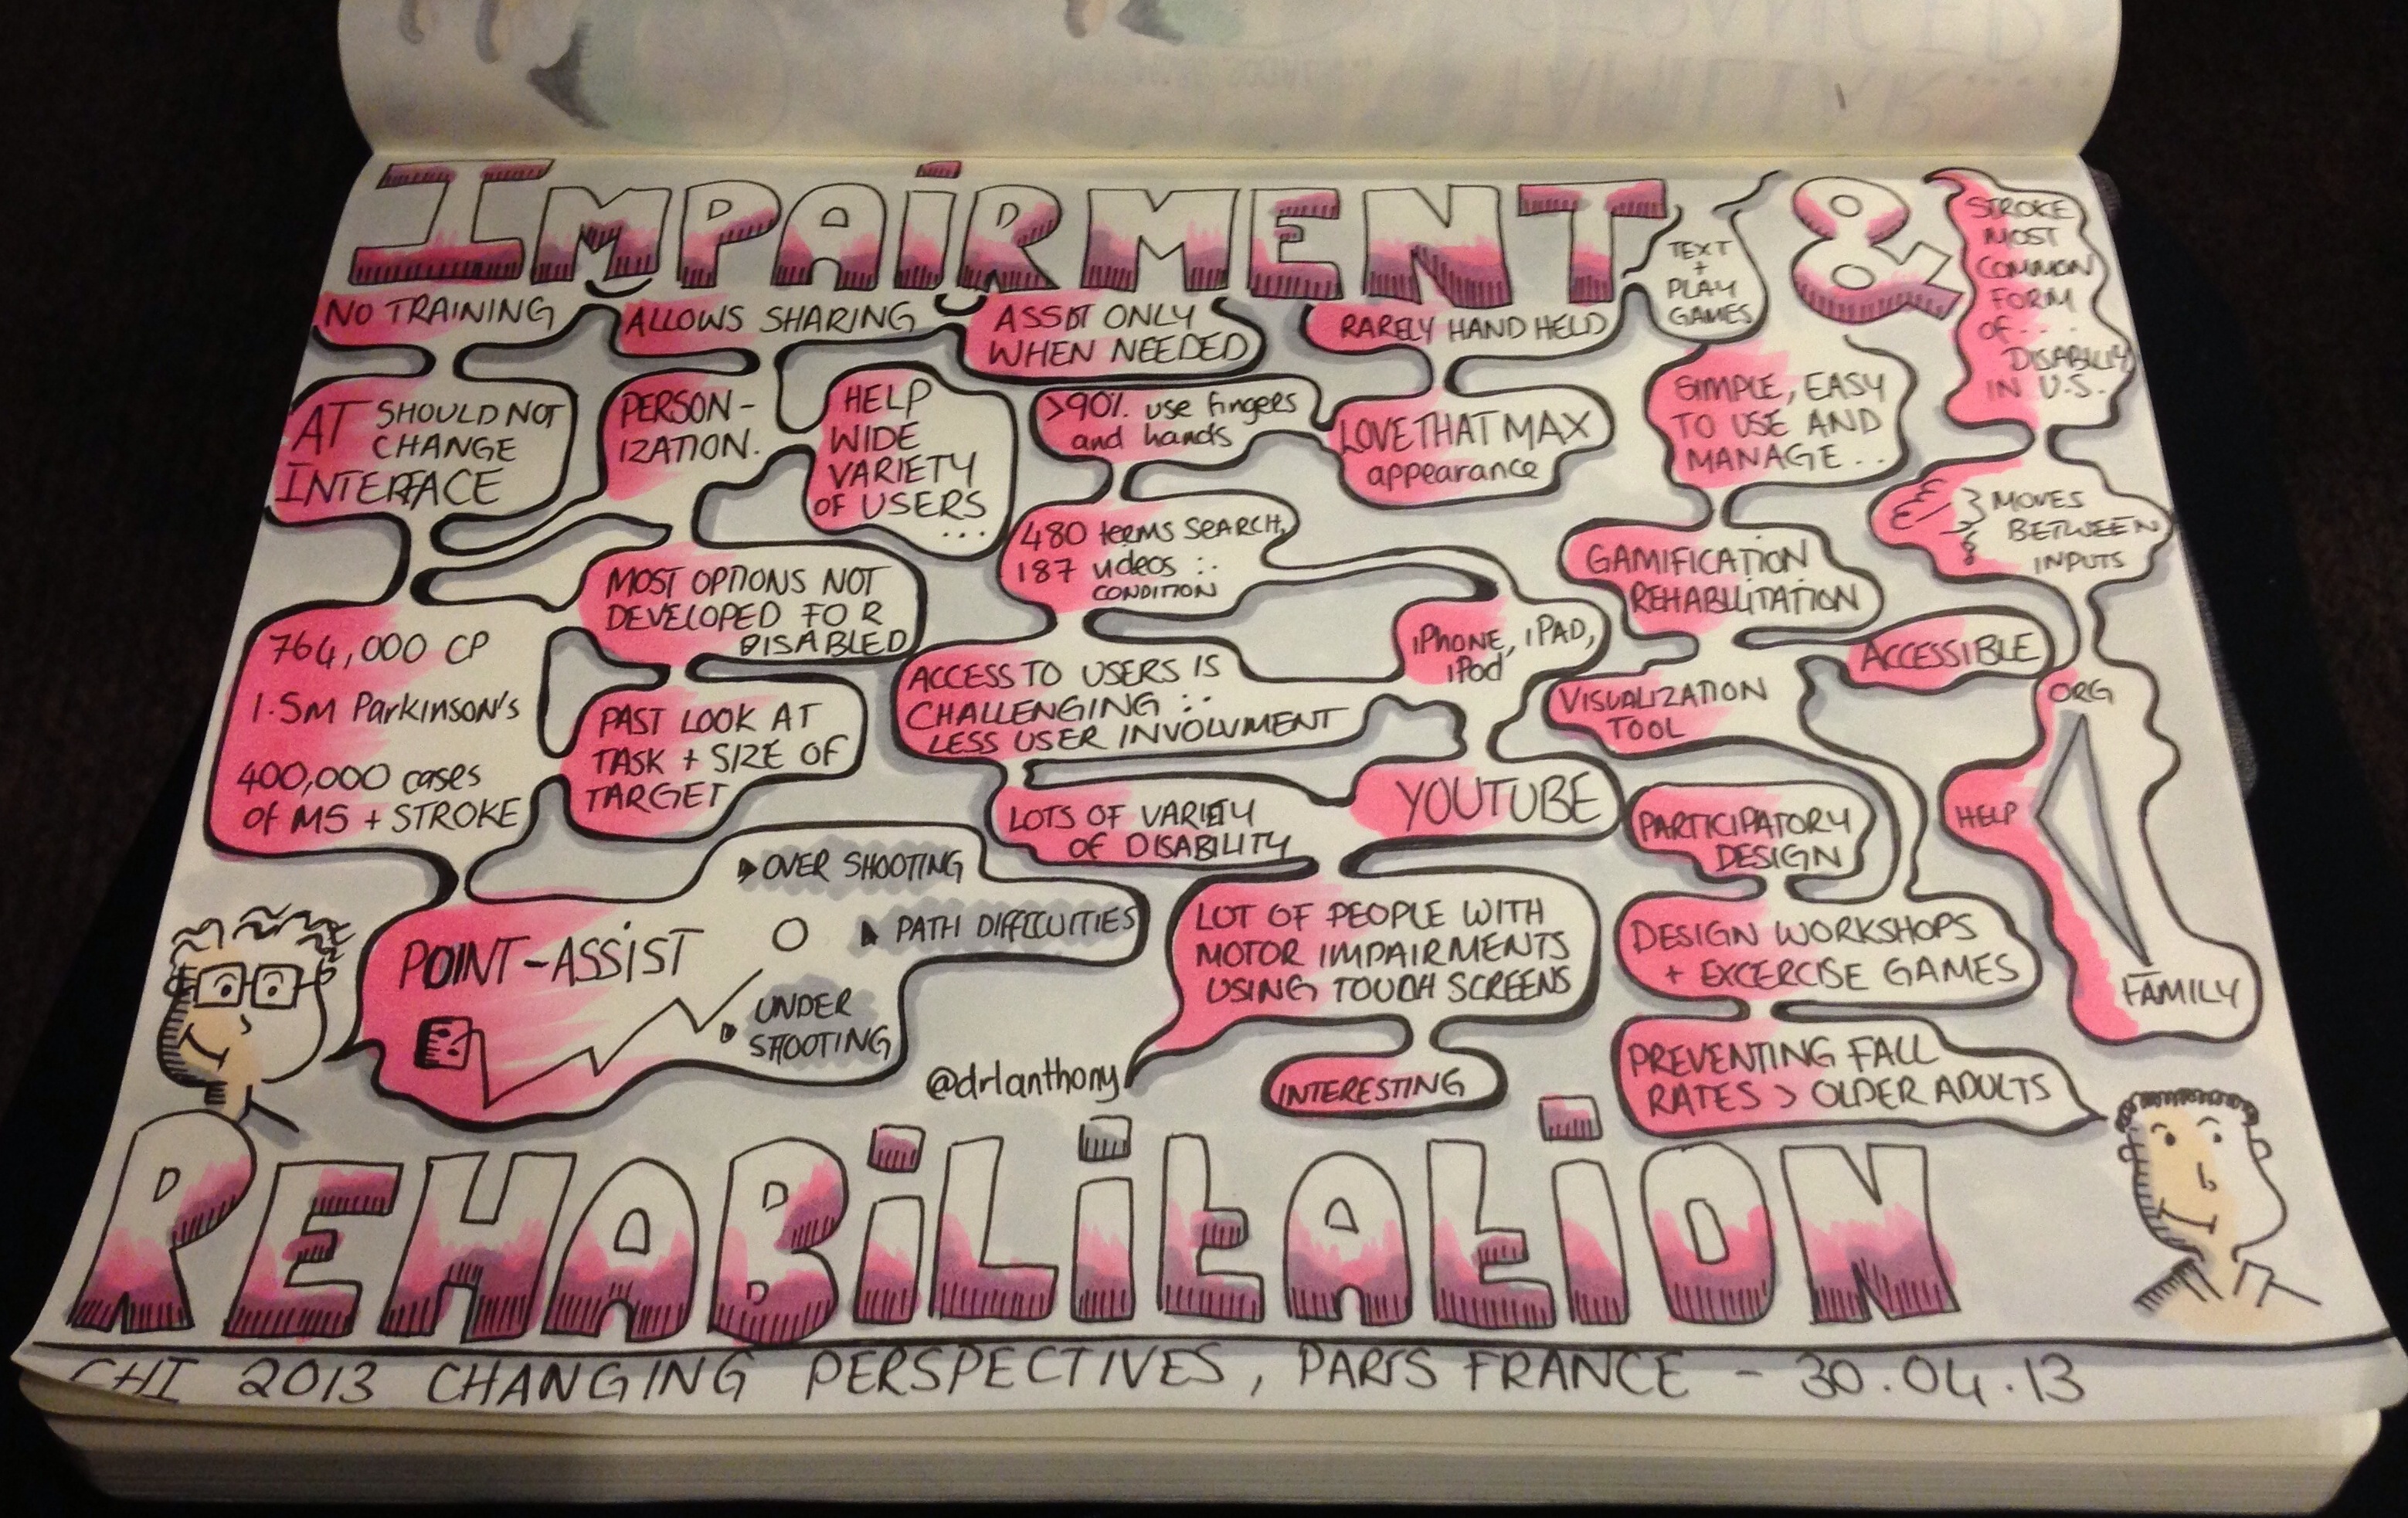 IMPAIRMENT &
NO TRAINING
AT SHOULD NOT
CHANGE
INTERFACE
764,000 CP
1.5M Parkinson's
400,000 cases
of MS + STROKE
ALLOWS SHARING
PERSON-
IZATION.
HELP
WIDE
VARIETY
OF USERS
...
MOST OPTIONS NOT
DEVELOPED FOR
DISABLED
PAST LOOK AT
TASK + SIZE OF
TARGET
ASSIST ONLY
WHEN NEEDED
POINT-ASSIST
OVER SHOOTING
PATH DIFFICUITIES
UNDER
SHOOTING
RARELY HAND HELD
TEXT
+
PLAY
GAMES
>90% use fingers
and hands
LOVE THAT MAX
appearance
480 terms SEARCH,
187 videos ∵
CONDITION
iPhone, iPAD,
iPod
ACCESS TO USERS IS
CHALLENGING ∵
LESS USER INVOLVMENT
LOTS OF VARIETY
OF DISABILITY
YOUTUBE
LOT OF PEOPLE WITH
MOTOR IMPAIRMENTS
USING TOUCH SCREENS
INTERESTING
@drlanthony
STROKE
MOST
COMMON
FORM
OF...
DISABILITY
IN U.S.
3 MOVES
BETWEEN
INPUTS
ORG
HELP
FAMILY
SIMPLE, EASY
TO USE AND
MANAGE..
GAMIFICATION
REHABILITATION
ACCESSIBLE
VISUALIZATION
TOOL
PARTICIPATORY
DESIGN
DESIGN WORKSHOPS
+ EXCERCISE GAMES
PREVENTING FALL
RATES > OLDER ADULTS
REHABiLitAtiON
CHI 2013 CHANGING PERSPECTIVES, PARIS FRANCE - 30.04.13